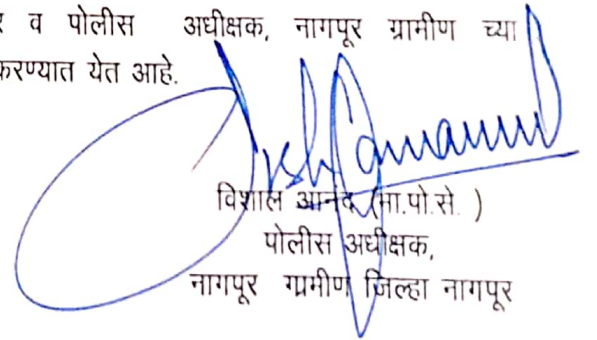 व पोलीस अधीक्षक, नागपूर ग्रामीण च्या
करण्यात येत आहे.
विशाल आनंद (भा.पो.से. )
पोलीस अधीक्षक,
नागपूर ग्रामीण जिल्हा नागपूर